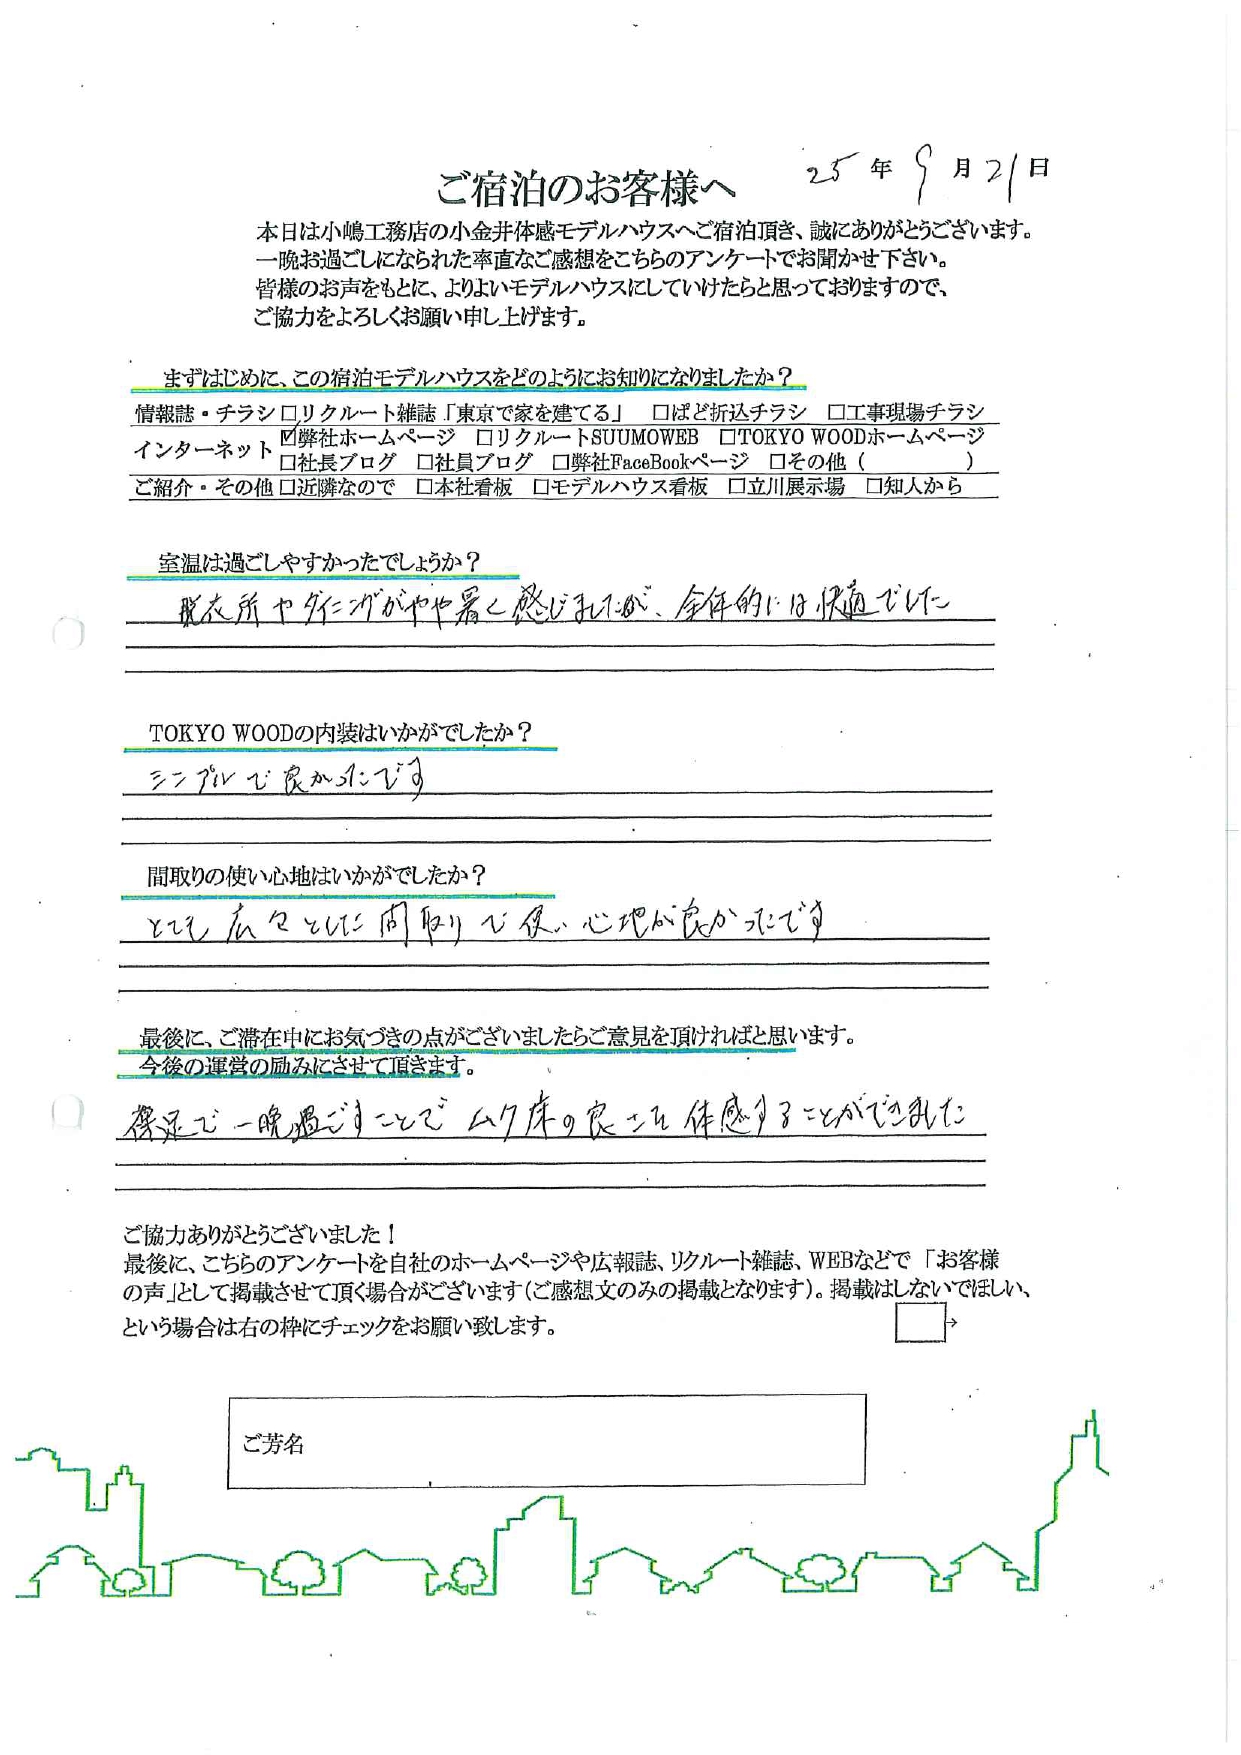 25年9月21日
ご宿泊のお客様へ
本日は小嶋工務店の小金井体感モデルハウスへご宿泊頂き、誠にありがとうございます。
一晩お過ごしになられた率直なご感想をこちらのアンケートでお聞かせ下さい。
皆様のお声をもとに、よりよいモデルハウスにしていけたらと思っておりますので、
ご協力をよろしくお願い申し上げます。
まずはじめに、この宿泊モデルハウスをどのようにお知りになりましたか？
情報誌・チラシ □リクルート雑誌「東京で家を建てる」 □ぱど折込チラシ □工事現場チラシ
インターネット ☑弊社ホームページ □リクルートSUUMOWEB □TOKYO WOODホームページ
□社長ブログ □社員ブログ □弊社FaceBookページ □その他（　　　　　）
ご紹介・その他 □近隣なので □本社看板 □モデルハウス看板 □立川展示場 □知人から
室温は過ごしやすかったでしょうか？
脱衣所やダイニングがやや暑く感じましたが、全体的には快適でした
TOKYO WOODの内装はいかがでしたか？
シンプルで良かったです
間取りの使い心地はいかがでしたか？
とても広々とした間取りで使い心地が良かったです
最後に、ご滞在中にお気づきの点がございましたらご意見を頂ければと思います。
今後の運営の励みにさせて頂きます。
裸足で一晩過ごすことでムク床の良さを体感することができました
ご協力ありがとうございました！
最後に、こちらのアンケートを自社のホームページや広報誌、リクルート雑誌、WEBなどで「お客様
の声」として掲載させて頂く場合がございます（ご感想文のみの掲載となります）。掲載はしないでほしい、
という場合は右の枠にチェックをお願い致します。 □→
ご芳名